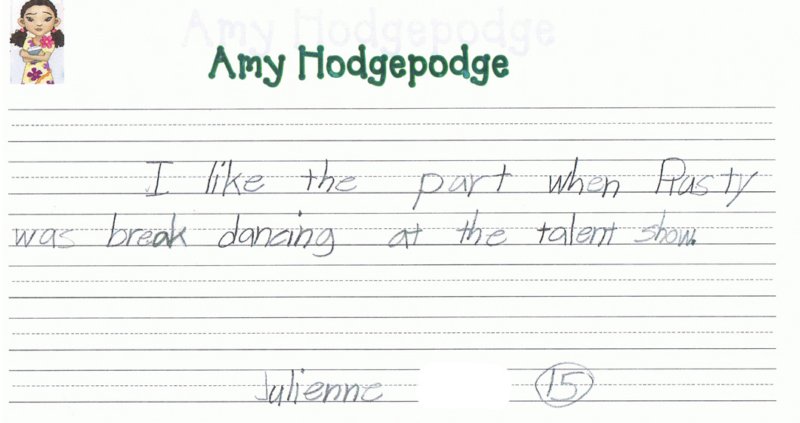 Amy Hodgepodge
I like the part when Rusty
was break dancing at the talent show.
Julienne 15